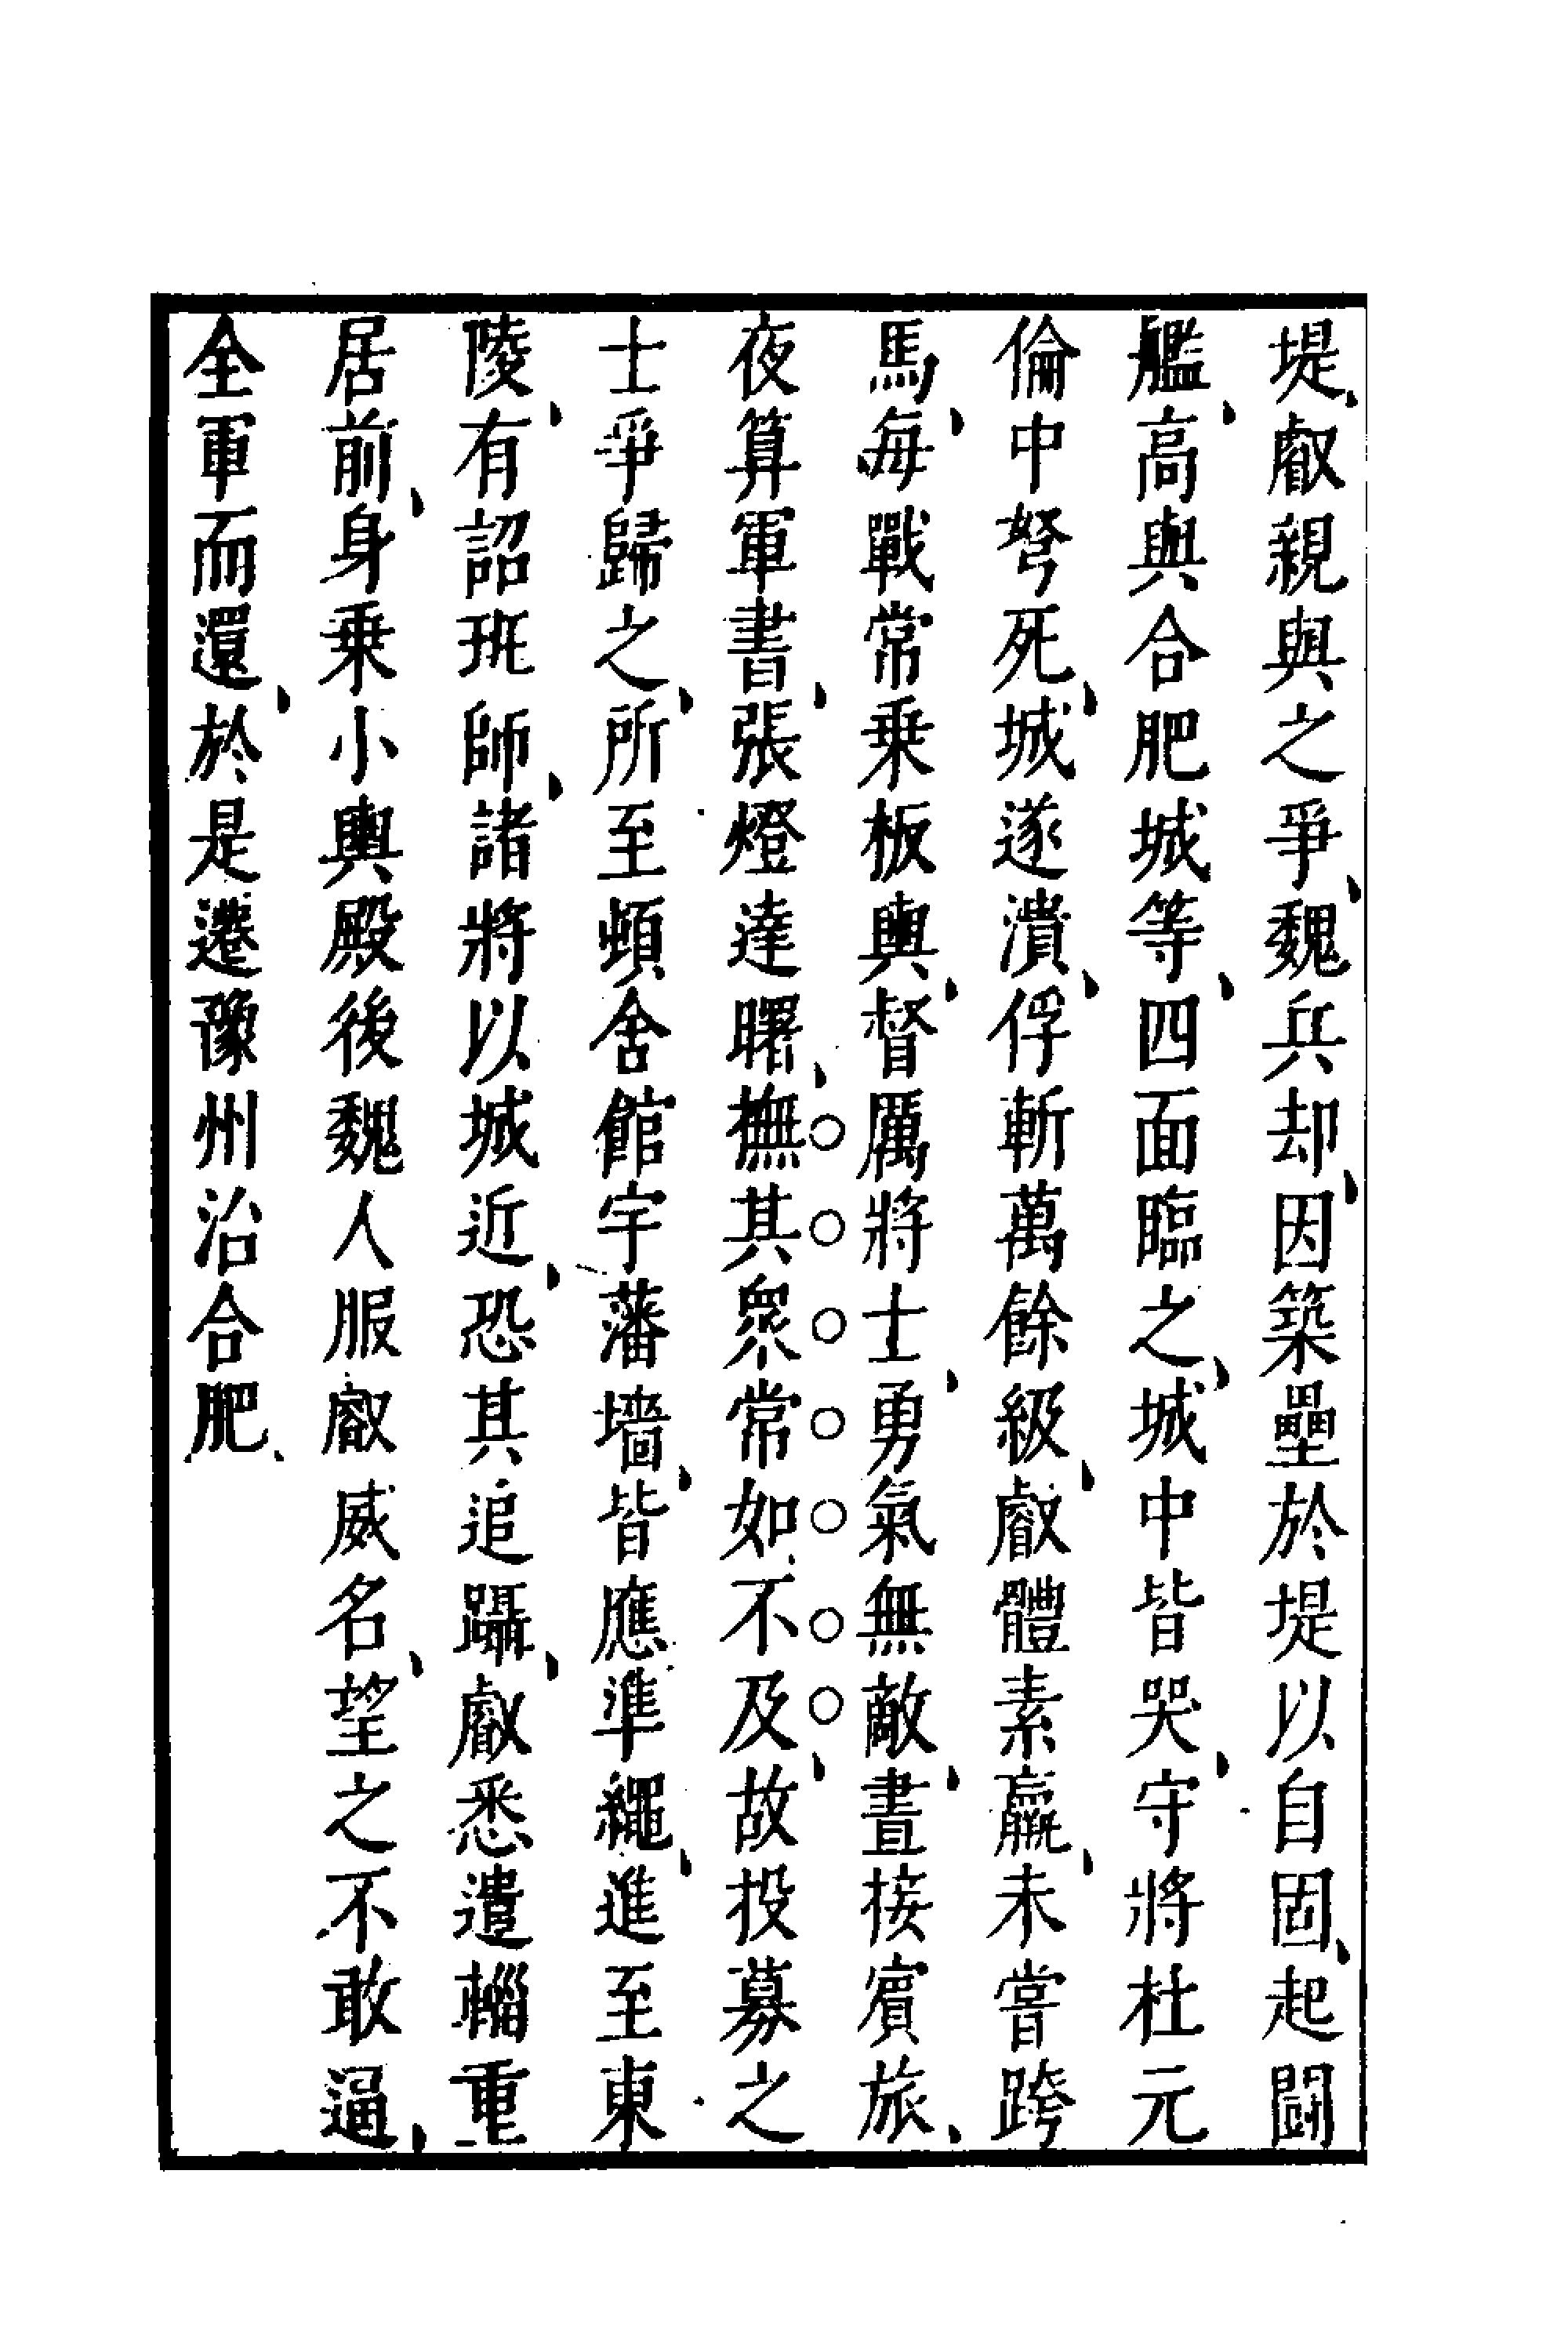 堤、叡親與之爭、魏兵却、因築壘於堤以自固、起鬪
艦、高與合肥城等、四面臨之、城中皆哭、守將杜元
倫中弩死、城遂潰、俘斬萬餘級、叡體素羸、未嘗跨
馬、每戰常乗板輿、督厲將士、勇氣無敵、晝接賓旅、
夜算軍書、張燈達曙、撫其衆常如不及、故投募之
士爭歸之、所至頓舍館宇藩墻、皆應準繩、進至東
陵、有詔班師、諸將以城近、恐其追躡、叡悉遣輜重
居前、身乗小輿殿後魏人服叡威名、望之不敢逼、
全軍而還、於是遷豫州治合肥、